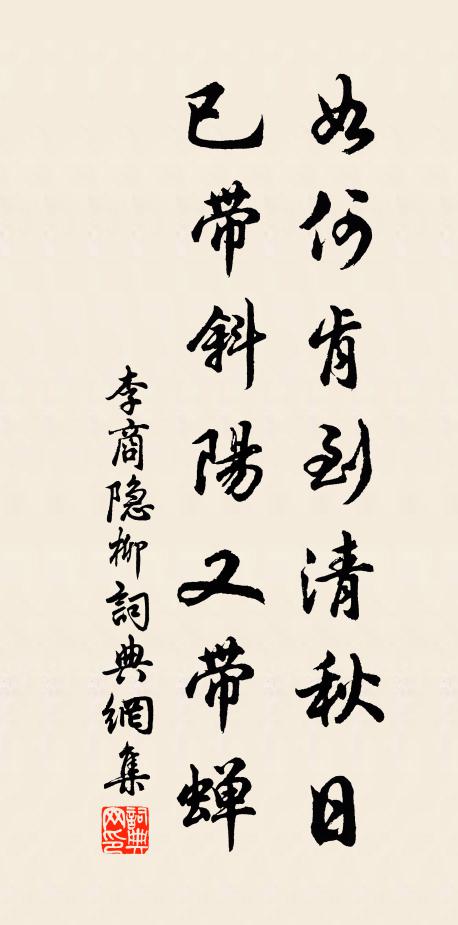 如何肯到清秋日
已带斜陽又带蝉
李商隐柳詞典網集
詞典網印